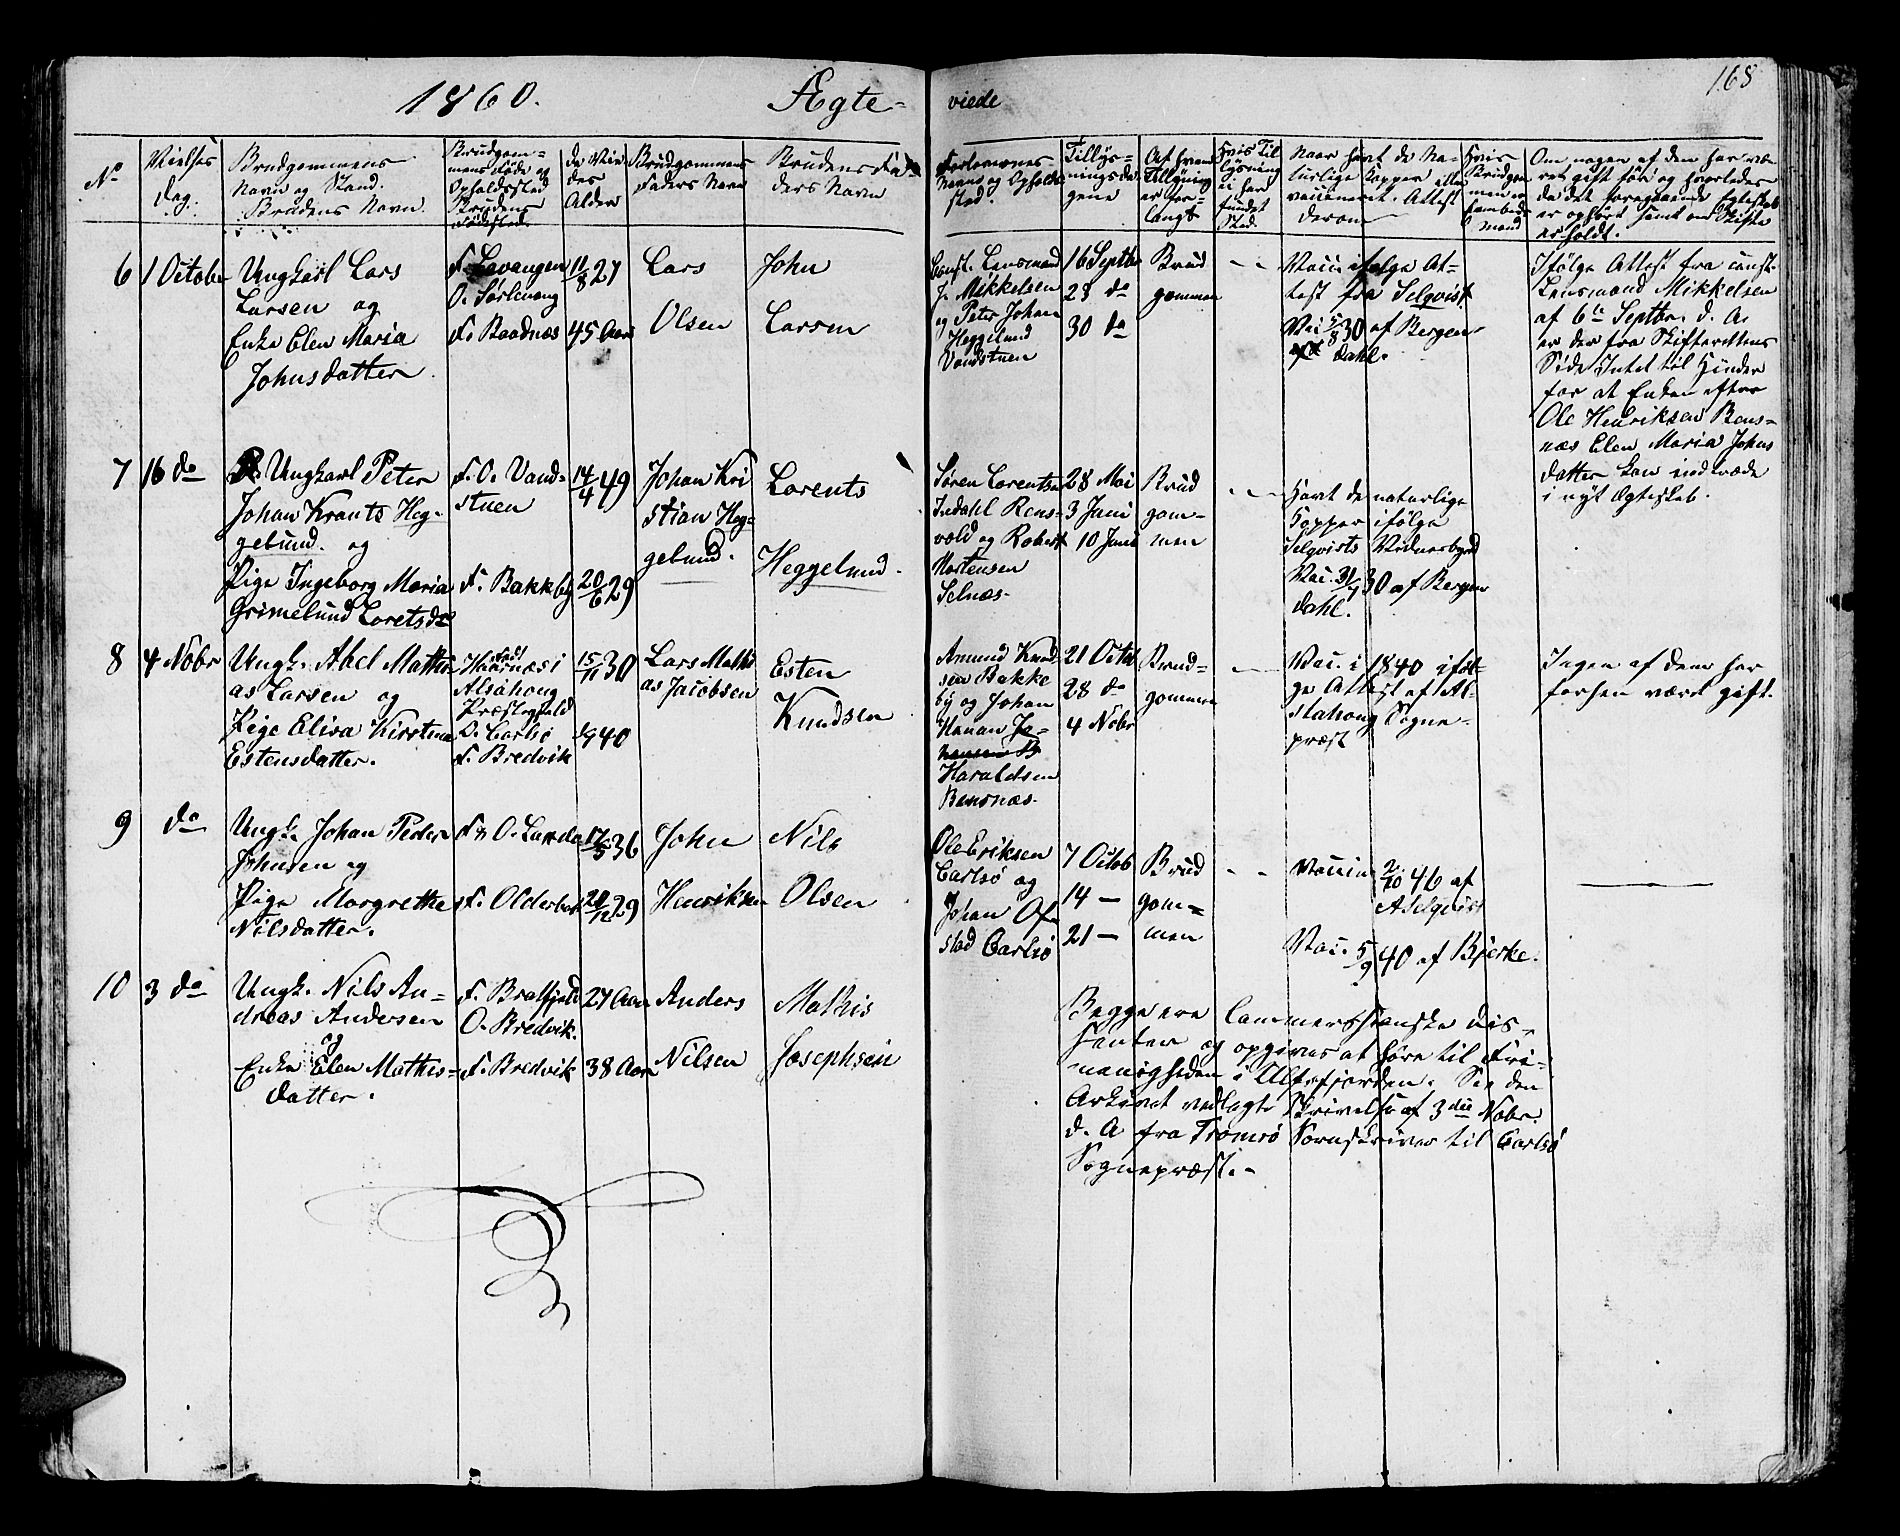 1860.
Ægte-
viede
168
No
Vielses
Dag.
Brudgommens
Navn og Stand.
Brudens Navn.
Brudgom-
mens Føde og
Opholdssted
Brudens
Fødested.
de Vie
des
Alder
Brudgommens
Faders Navn
Brudens Fa-
ders Navn
Forlovernes
Navne og Opholds
sted.
Tillys-
ningsda
gene
Af hvem
Tillysning
er for-
langt
Hvis Til
lysning
ei har
fundet
Sted.
Naar havt de Na-
turlige Kopper eller
vaccineret. Attest
derom
Om nogen af dem har væ-
ret gift før og hvorledes
da det foregaaende Egteskab
er ophørt samt om Skifte
er holdt.
6
1 October
Ungkarl Lars
Larsen og
Enke Elen Maria
Johnsdatter.
F. Lavangen
O. Sørlenang
F. Baadnæs
11/8 27
45 Aar
Lars
Olsen
John
Larsen
Const. Lensmand
J. Mikkelsen
og Peter Johan
Heggelund
Vandstuen
16 Septbr
23 do
30 do
Brud
gommen
- -
Vacc. ifølge At-
test fra Selqvist
Vac 5/8 30 af Bergen-
dahl.
Ifølge Attest fra const.
Lensmand Mikkelsen
af 6te Septbr. d. A.
er der fra Skifterettens
Side Intet til Hinder
for at Enken efter
Ole Henriksen Bens-
næs Elen Maria Johns
datter kan indtræde
i nyt Ægteskab.
7
16 do
Ungkarl Peter
Johan Krants Heg-
gelund. og
Pige Ingeborg Maria
Grimelund Loretsdr
F. O. Vand-
stuen
F. Bakkby
14/4 49
20/6 29
Johan Kri
stian Heg-
gelund.
Lorents
Heggelund.
Søren Lorentsen
Indahl Rens-
vold og Robert
Mortensen
Selnæs.
28 Mai
3 Juni
10 Juni
Brud
gom-
men
- -
Havt de naturlige
Kopper ifølge
Selqvists Vidnesbyrd
Vac. 31/7 30 af Bergen
dahl.
8
4 Nobr
Ungk. Abel Mathi-
as Larsen og
Pige Elisa Kirstina
Estensdatter.
Hiarnæs i
Alsahoug
Præstegjeld
O. Carlsø
F. Bredvik
15/11 30
40
Lars Mathi
as Jacobsen
Esten
Knudsen
Amund Knud-
sen Bakke
by og Johan
Haraldsen
Bensnæs.
21 Octob
28 do
4 Nobr
Brud-
gommen
- -
Vac. i 1840 iføl-
ge Attest af Al-
stahoug Sogne-
præst
Ingen af dem har
forhen været gift.
9
do
Ungk. Johan Peder
Johnsen og
Pige Margrethe
Nilsdatter.
F. Olderbak
17/5 36
20/12 29
John
Henriksen
Nils
Olsen
Ole Eriksen
Carlsø og
Johan Of-
stad Carlsø
7 Octob
14 —
21 —
Brud
gom-
men
- -
Vaccin 2/10 46 af
A Selqvist
Vac. 5/9 40 af Bjerke.
10
3 do
Ungk. Nils An-
dreas Andersen
og
Enke Elen Mathis-
datter.
F. Bratfjeld
O. Bredvik.
F. Bredvik
27 Aar
38 Aar
Anders
Nilsen
Mathis
Josephsen
Begge ere Lammersianske Dis-
senter og opgives at høre til Fri-
menigheden i Ulfsfjorden. See den
Arkivet vedlagte Skrivelse af 3die Nobr.
d. A fra Tromsø Sorenskriver til Carlsø
Sognepræst.-